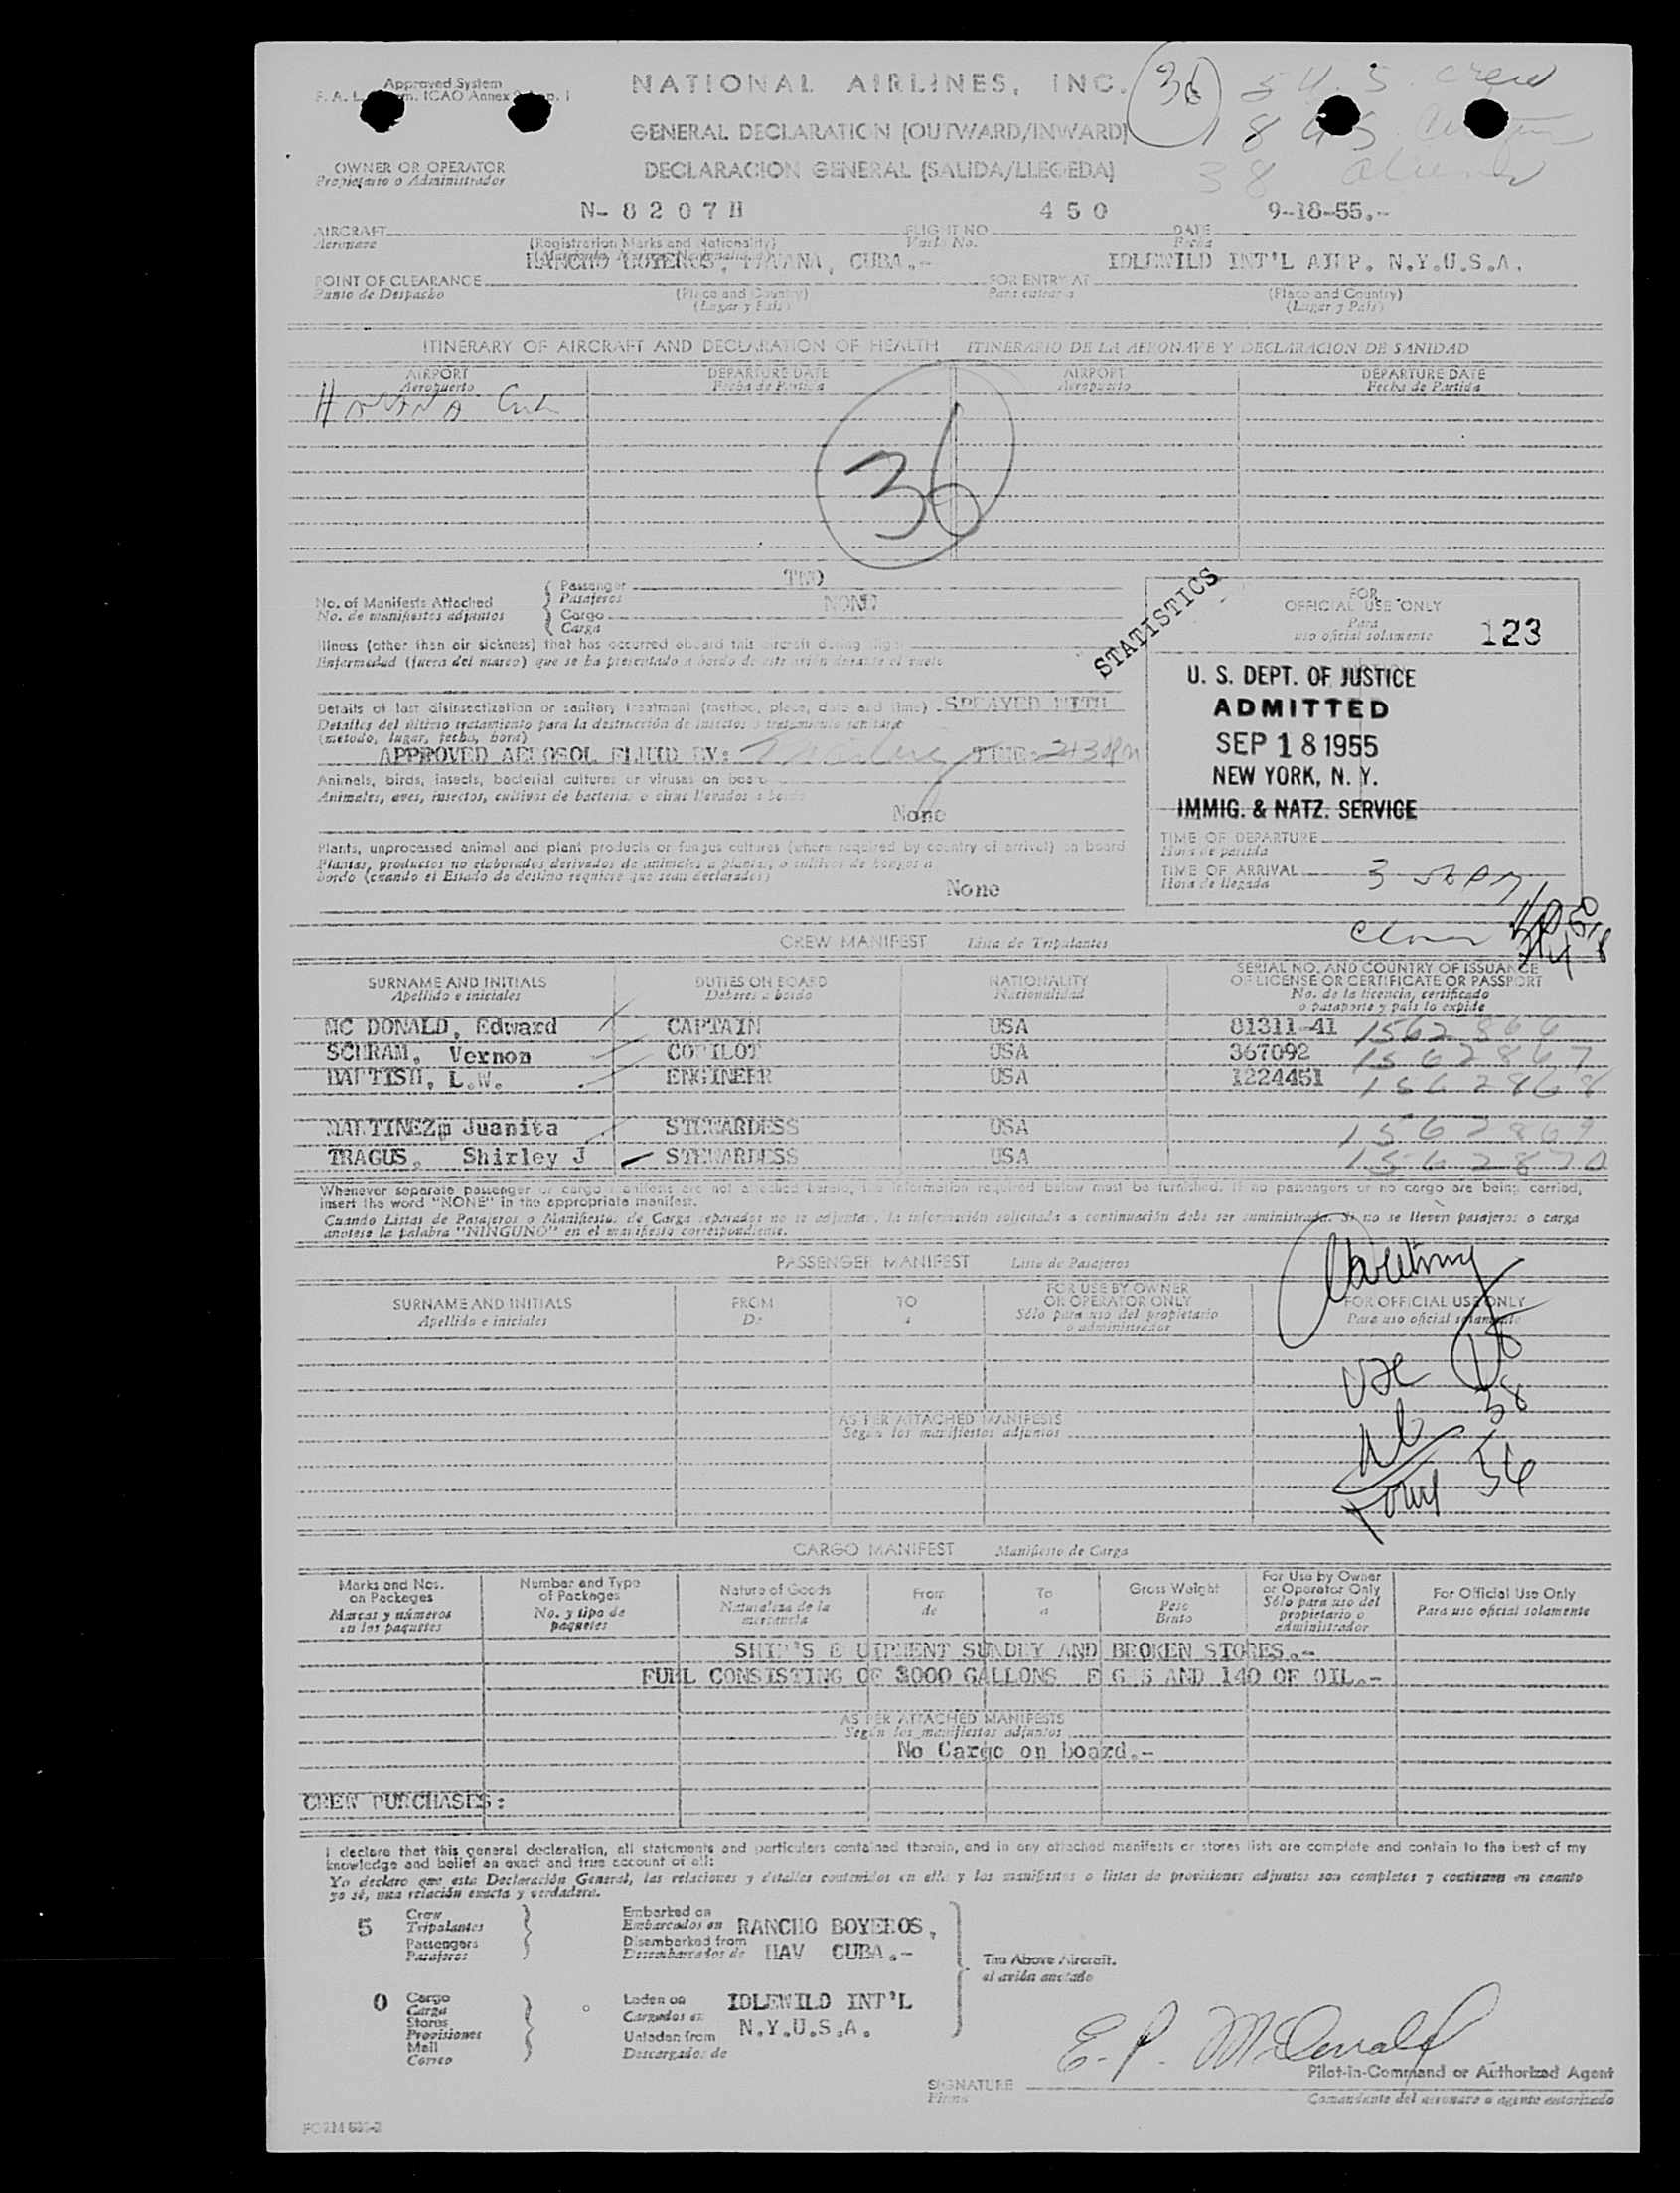 Approved System
NATIONAL AIRLINES, INC.
36
5 U.S. Crew
GENERAL DECLARATION (OUTWARD/INWARD)
OWNER OR OPERATOR
Propietario o Administrador
DECLARACION GENERAL (SALIDA/LLEGEDA)
38 aliens
N- 8 2 0 7 H
4 5 0
9-18-55.-
AIRCRAFT
FLIGHT NO
DATE
Aeronave
(Registration Marks and Nationality)
Vuelo No.
Fecha
RANCHO BOYEROS, HAVANA, CUBA.-
IDLEWILD INT'L AIRP. N.Y.U.S.A.
POINT OF CLEARANCE
FOR ENTRY AT
Punto de Despacho
(Place and Country)
Para entrar a
(Place and Country)
(Lugar y País)
(Lugar y País)
ITINERARY OF AIRCRAFT AND DECLARATION OF HEALTH ITINERARIO DE LA AERONAVE Y DECLARACION DE SANIDAD
AIRPORT
DEPARTURE DATE
AIRPORT
DEPARTURE DATE
Aeropuerto
Fecha de Partida
Aeropuerto
Fecha de Partida
HAVANA Cuba
36
No. of Manifests Attached
No. de manifiestos adjuntos
Passenger TWO
Pasajeros
Cargo NONE
Carga
STATISTICS
FOR
OFFICIAL USE ONLY
Para
uso oficial solamente
123
Illness (other than air sickness) that has occurred aboard this aircraft during flight
Enfermedad (fuera del mareo) que se ha presentado a bordo de este avión durante el vuelo
U. S. DEPT. OF JUSTICE
ADMITTED
SEP 18 1955
NEW YORK, N. Y.
IMMIG. & NATZ. SERVICE
Details of last disinsectization or sanitary treatment (method, place, date and time) SPRAYED WITH
Detalles del último tratamiento para la destrucción de insectos o tratamiento sanitario
(método, lugar, fecha, hora)
APPROVED AEROSOL FLUID BY: TIME:
Animals, birds, insects, bacterial cultures or viruses on board
Animales, aves, insectos, cultivos de bacterias o virus llevados a bordo
None
Plants, unprocessed animal and plant products or fungus cultures (where required by country of arrival) on board
Plantas, productos no elaborados derivados de animales a plantas, o cultivos de hongos a
bordo (cuando el Estado de destino requiere que sean declarados)
None
TIME OF DEPARTURE
Hora de partida
TIME OF ARRIVAL
Hora de llegada
CREW MANIFEST Lista de Tripulantes
SURNAME AND INITIALS
Apellido e iniciales
DUTIES ON BOARD
Deberes a bordo
NATIONALITY
Nacionalidad
SERIAL NO. AND COUNTRY OF ISSUANCE
OF LICENSE OR CERTIFICATE OR PASSPORT
No. de la licencia, certificado
o pasaporte y país lo expide
MC DONALD, Edward CAPTAIN USA 81311-41 1562866
SCHRAM, Vernon COPILOT USA 367092 1562867
BATTISH, L.W. ENGINEER USA 1224451 1562868
MARTINEZ, Juanita STEWARDESS USA 1562869
TRAGUS, Shirley J STEWARDESS USA 1562870
Whenever separate passenger or cargo manifests are not attached hereto, the information required below must be furnished. If no passengers or no cargo are being carried,
insert the word "NONE" in the appropriate manifest.
Cuando Listas de Pasajeros o Manifiestos de Carga separados no se adjuntan, la información solicitada a continuación debe ser suministrada. Si no se lleven pasajeros o carga
anotese la palabra "NINGUNO" en el manifiesto correspondiente.
PASSENGER MANIFEST Lista de Pasajeros
SURNAME AND INITIALS
Apellido e iniciales
FROM
De
TO
a
FOR USE BY OWNER
OR OPERATOR ONLY
Sólo para uso del propietario
o administrador
FOR OFFICIAL USE ONLY
Para uso oficial solamente
18
38
AS PER ATTACHED MANIFESTS
Según los manifiestos adjuntos
56
CARGO MANIFEST Manifiesto de Carga
Marks and Nos.
on Packages
Marcas y números
en los paquetes
Number and Type
of Packages
No. y tipo de
paquetes
Nature of Goods
Naturaleza de la
mercancía
From
de
To
a
Gross Weight
Peso
Bruto
For Use by Owner
or Operator Only
Sólo para uso del
propietario o
administrador
For Official Use Only
Para uso oficial solamente
SHIP'S EQUIPMENT SUNDRY AND BROKEN STORES.-
FUEL CONSISTING OF 3000 GALLONS OF GAS AND 140 OF OIL.-
AS PER ATTACHED MANIFESTS
Según los manifiestos adjuntos
No Cargo on board.-
CREW PURCHASES:
I declare that this general declaration, all statements and particulars contained therein, and in any attached manifests or stores lists are complete and contain to the best of my
knowledge and belief an exact and true account of all:
Yo declaro que esta Declaración General, las relaciones y detalles contenidos en ella y los manifiestos o listas de provisiones adjuntos son completos y contienen en cuanto
yo sé, una relación exacta y verdadera.
5
Crew
Tripulantes
Passengers
Pasajeros
Embarked on
Embarcados en RANCHO BOYEROS,
Disembarked from
Desembarcados de HAV CUBA.-
The Above Aircraft.
el avión anotado
0
Cargo
Carga
Stores
Provisiones
Mail
Correo
Laden on IDLEWILD INT'L
Cargados en
N.Y.U.S.A.
Unladen from
Descargados de
E. P. McDonald
Pilot-in-Command or Authorized Agent
SIGNATURE
Firma
Comandante del aeronave o agente autorizado